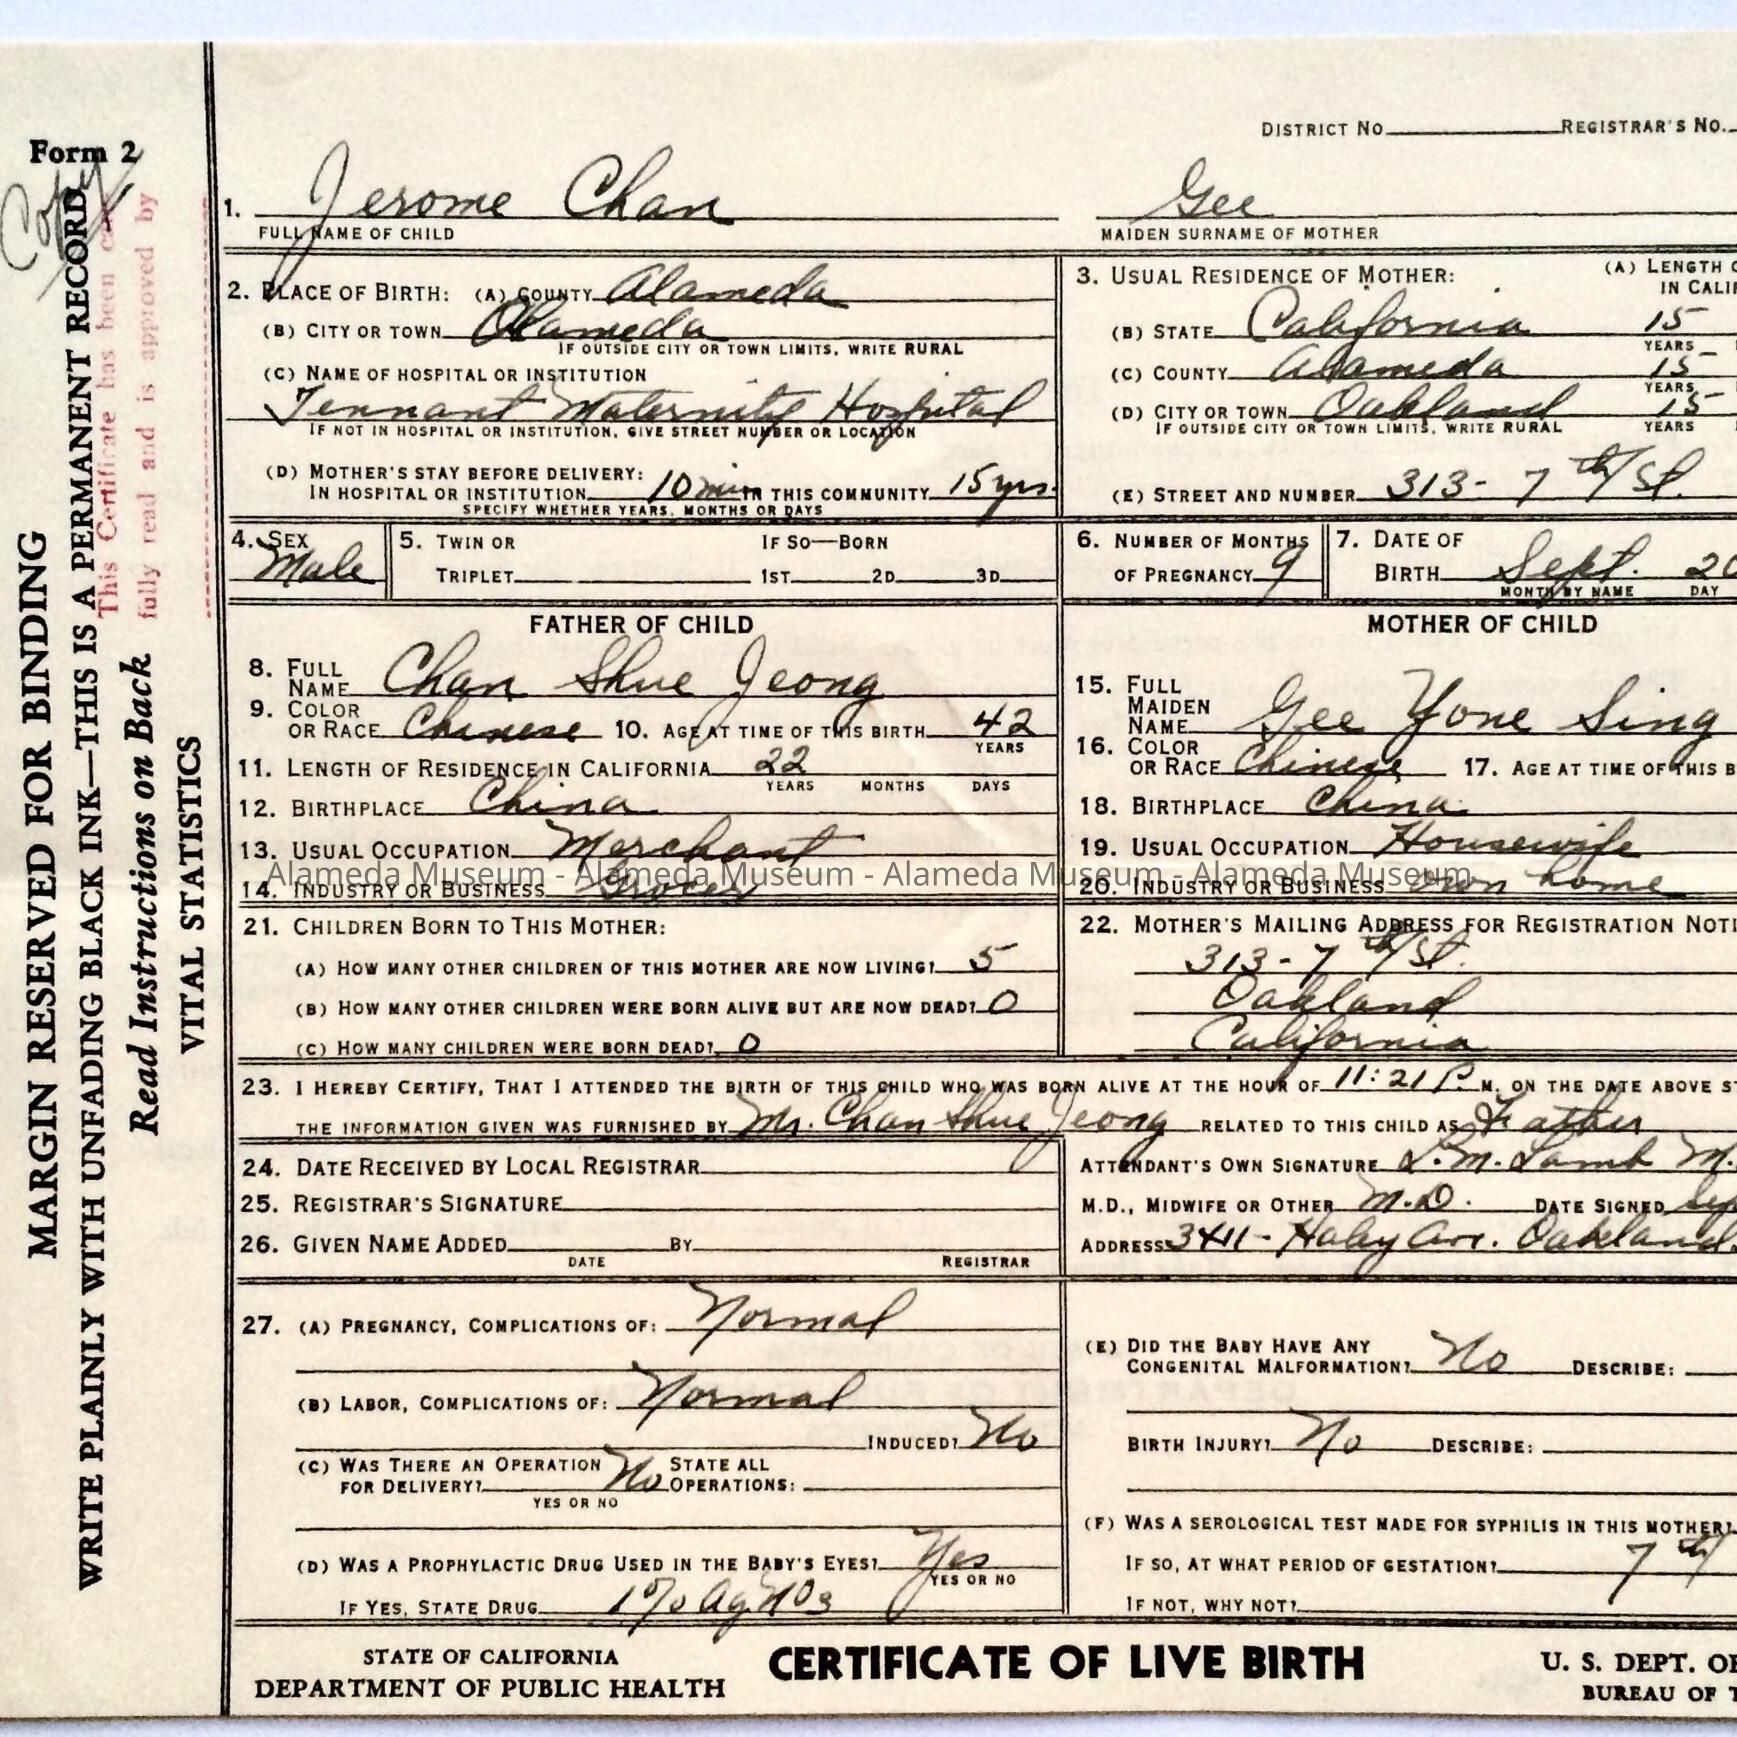 Form 2
Copy
MARGIN RESERVED FOR BINDING
WRITE PLAINLY WITH UNFADING BLACK INK—THIS IS A PERMANENT RECORD
This Certificate has been
fully read and is approved by
Read Instructions on Back
VITAL STATISTICS
DISTRICT NO. REGISTRAR'S NO.
1. Jerome Chan Gee
FULL NAME OF CHILD MAIDEN SURNAME OF MOTHER
2. PLACE OF BIRTH: (A) COUNTY Alameda
(B) CITY OR TOWN Alameda
IF OUTSIDE CITY OR TOWN LIMITS, WRITE RURAL
(C) NAME OF HOSPITAL OR INSTITUTION
Tennant Maternity Hospital
IF NOT IN HOSPITAL OR INSTITUTION, GIVE STREET NUMBER OR LOCATION
(D) MOTHER'S STAY BEFORE DELIVERY:
IN HOSPITAL OR INSTITUTION 10 min IN THIS COMMUNITY 15 yrs.
SPECIFY WHETHER YEARS, MONTHS OR DAYS
3. USUAL RESIDENCE OF MOTHER: (A) LENGTH
IN
(B) STATE California 15
YEARS
(C) COUNTY Alameda 15
YEARS
(D) CITY OR TOWN Oakland 15
IF OUTSIDE CITY OR TOWN LIMITS, WRITE RURAL YEARS
(E) STREET AND NUMBER 313 - 7th St.
4. SEX
Male
5. TWIN OR IF SO—BORN
TRIPLET 1ST 2D 3D
6. NUMBER OF MONTHS
OF PREGNANCY 9
7. DATE OF
BIRTH Sept. 20
MONTH BY NAME DAY
FATHER OF CHILD
8. FULL NAME Chan Shue Jeong
9. COLOR OR RACE Chinese 10. AGE AT TIME OF THIS BIRTH 42
YEARS
11. LENGTH OF RESIDENCE IN CALIFORNIA 22
YEARS MONTHS DAYS
12. BIRTHPLACE China
13. USUAL OCCUPATION Merchant
14. INDUSTRY OR BUSINESS Grocery
MOTHER OF CHILD
15. FULL MAIDEN NAME Gee Yone Sing
16. COLOR OR RACE Chinese 17. AGE AT TIME OF THIS
18. BIRTHPLACE China
19. USUAL OCCUPATION Housewife
20. INDUSTRY OR BUSINESS own home
Alameda Museum - Alameda Museum - Alameda Museum - Alameda Museum
21. CHILDREN BORN TO THIS MOTHER:
(A) HOW MANY OTHER CHILDREN OF THIS MOTHER ARE NOW LIVING? 5
(B) HOW MANY OTHER CHILDREN WERE BORN ALIVE BUT ARE NOW DEAD? 0
(C) HOW MANY CHILDREN WERE BORN DEAD? 0
22. MOTHER'S MAILING ADDRESS FOR REGISTRATION
313 - 7th St.
Oakland
California
23. I HEREBY CERTIFY, THAT I ATTENDED THE BIRTH OF THIS CHILD WHO WAS BORN ALIVE AT THE HOUR OF 11:21 P. M. ON THE DATE ABOVE
THE INFORMATION GIVEN WAS FURNISHED BY Mr. Chan Shue Jeong RELATED TO THIS CHILD AS Father
24. DATE RECEIVED BY LOCAL REGISTRAR
25. REGISTRAR'S SIGNATURE
26. GIVEN NAME ADDED BY
DATE REGISTRAR
ATTENDANT'S OWN SIGNATURE L. M. Lamb M.
M.D., MIDWIFE OR OTHER M.D. DATE SIGNED
ADDRESS 3411 - Haley Ave. Oakland
27. (A) PREGNANCY, COMPLICATIONS OF: Normal
(B) LABOR, COMPLICATIONS OF: Normal
INDUCED? No
(C) WAS THERE AN OPERATION FOR DELIVERY? No STATE ALL OPERATIONS:
YES OR NO
(D) WAS A PROPHYLACTIC DRUG USED IN THE BABY'S EYES? Yes
YES OR NO
IF YES, STATE DRUG 1% AgNO3
(E) DID THE BABY HAVE ANY
CONGENITAL MALFORMATION? No DESCRIBE:
BIRTH INJURY? No DESCRIBE:
(F) WAS A SEROLOGICAL TEST MADE FOR SYPHILIS IN THIS MOTHER?
IF SO, AT WHAT PERIOD OF GESTATION? 7th
IF NOT, WHY NOT?
STATE OF CALIFORNIA
DEPARTMENT OF PUBLIC HEALTH
CERTIFICATE OF LIVE BIRTH
U. S. DEPT. OF
BUREAU OF